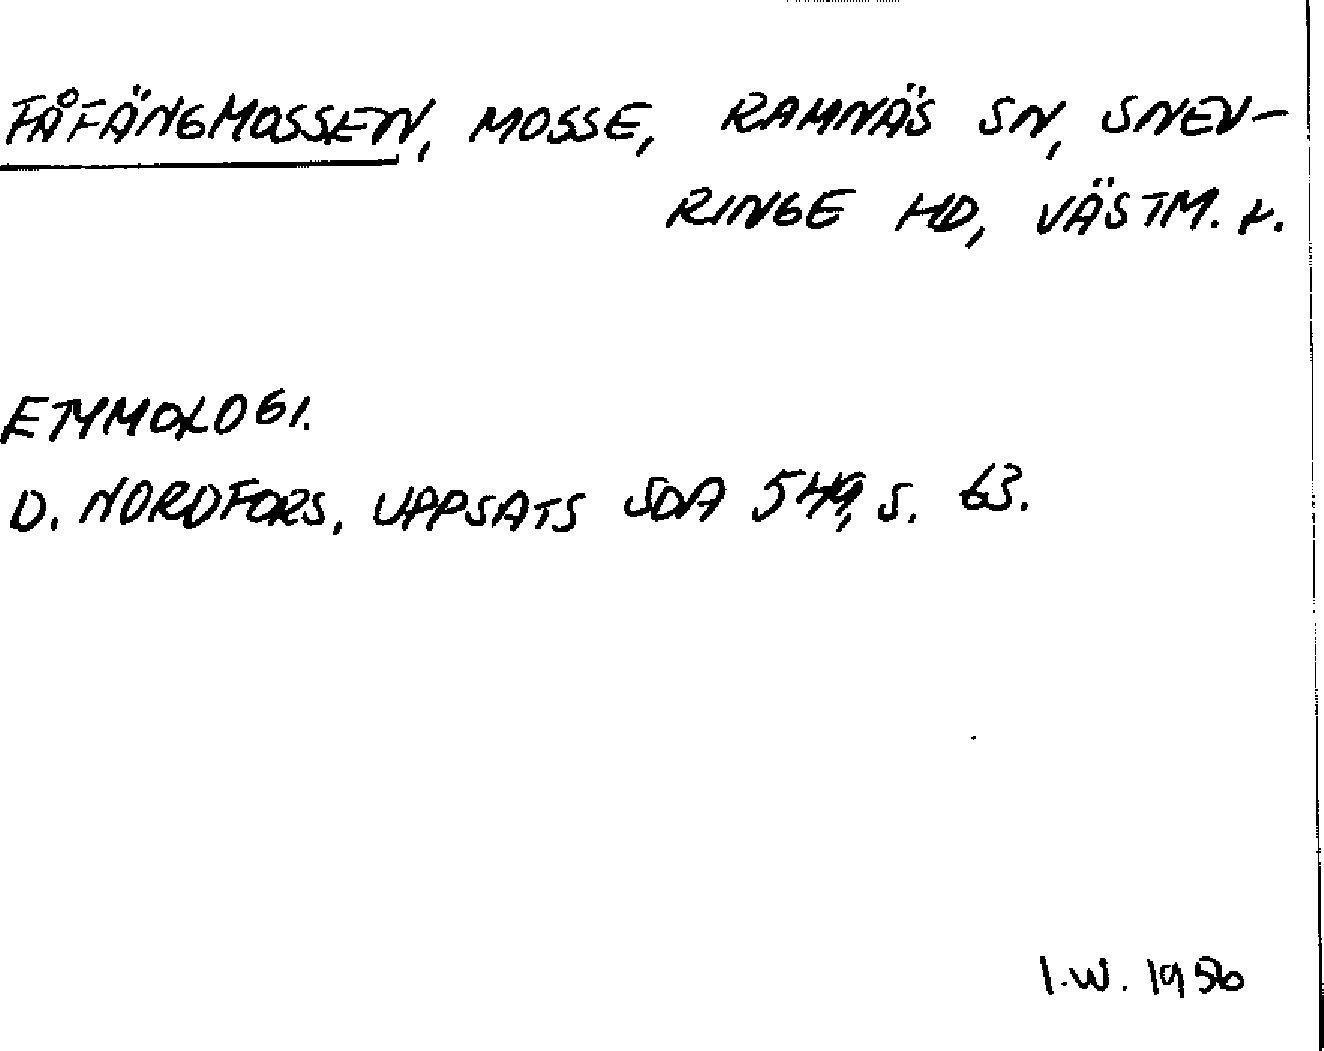 FÅFÄNGMOSSEN, MOSSE, RAMNÄS SN, SNEV-
RINGE HD, VÄSTM. L.
ETYMOLOGI.
D. NORDFORS, UPPSATS SOA 549, S. 63.
I.W. 1956